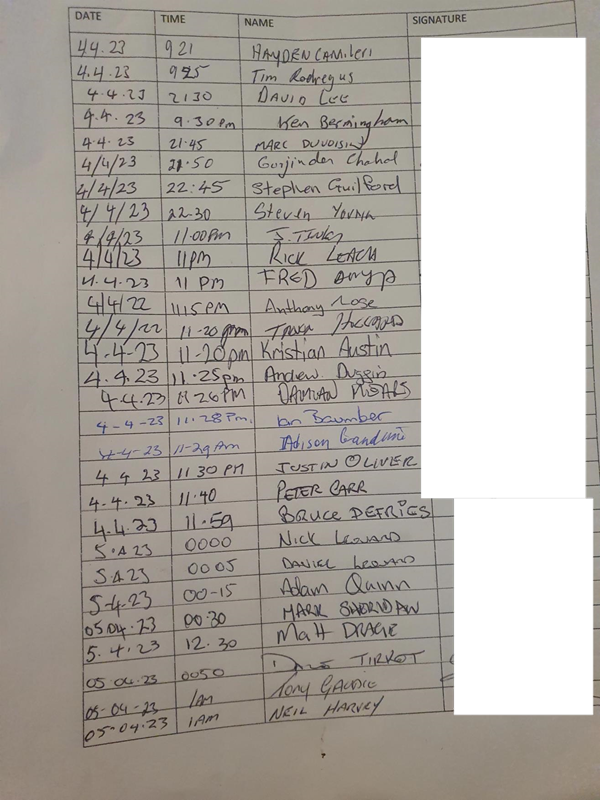 DATE TIME NAME SIGNATURE
4.4.23 921 HAYDEN CAMILERI
4.4.23 925 Tim Rodregus
4.4.23 2130 DAVID LEE
4.4.23 9.30pm Ken Bermingham
4.4.23 21.45 MARC DUVOISIN
4/4/23 21.50 Gurjinder Chahal
4/4/23 22:45 Stephen Guilford
4/4/23 22.30 Steven YOUNG
4/4/23 11.00PM
4/4/23 11PM RICK LEACH
4.4.23 11 PM FRED
4/4/22 11.15PM Anthony Rose
4/4/22 11-20
4.4.23 11-20pm Kristian Austin
4.4.23 11.25pm Andrew Duggin
4.4.23 11.26PM DAMIAN
4-4-23 11.28Pm. Ian Baumber
4-4-23 11-29pm
4 4 23 11 30 PM JUSTIN OLIVER
4.4.23 11.40 PETER CARR
4.4.23 11.59 BRUCE DEFRIES
5.4.23 0000 NICK LEONARD
5.4.23 0005 DANIEL LEONARD
5-4.23 00-15 Adam Quinn
05.04.23 00.30 MARK SHERIDAN
5.4.23 12.30 Matt DRAGE
05.04.23 0050 TIRKOT
05-04-23 1AM Tony GAUDIE
05-04.23 1AM NEIL HARVEY